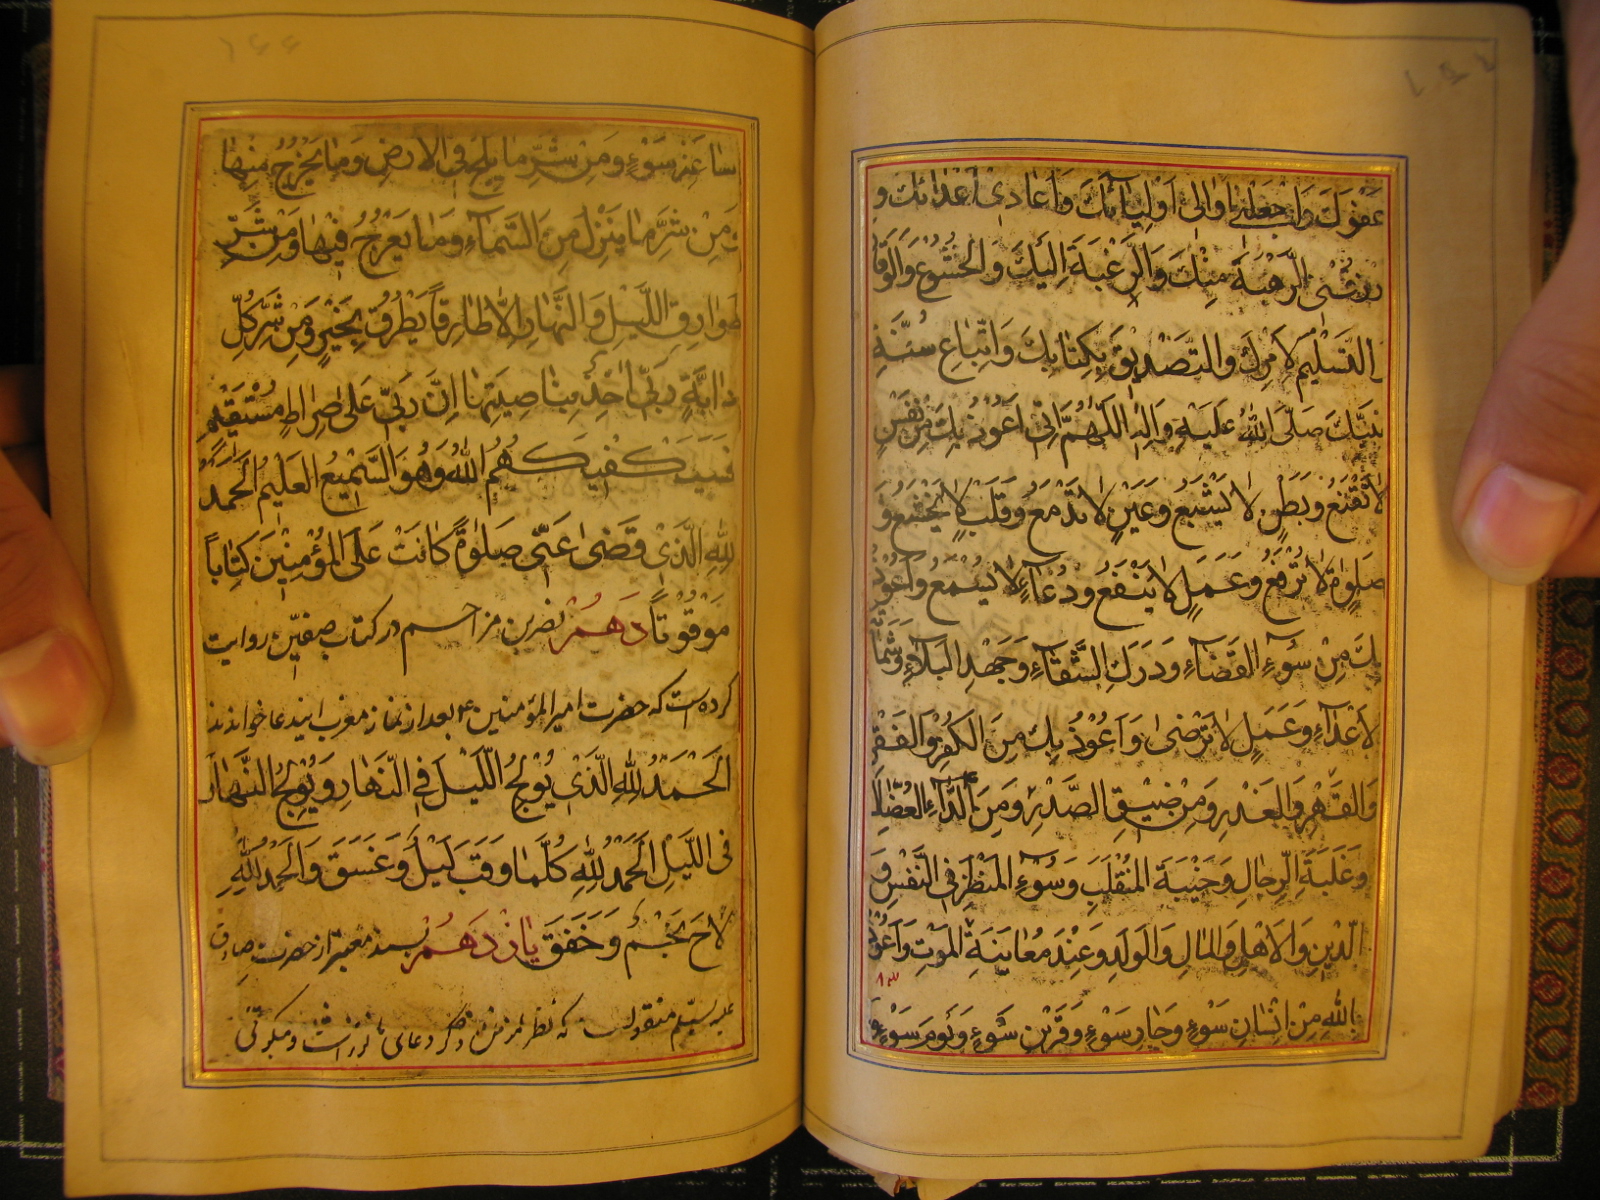 عَفْوِكَ وَاجْعَلْنِی اُوٰالِی اَوْلِیٰآئِكَ وَاُعٰادِی اَعْدٰائِكَ وَ
ارْزُقْنِی الرَّهْبَةَ مِنْكَ وَالرَّغْبَةَ اِلَیْكَ وَالْخُشُوعَ وَالْوَقٰا
التَّسْلِیمَ لِاَمْرِكَ وَالتَّصْدِیقَ بِكِتٰابِكَ وَاتِّبٰاعَ سُنَّةِ
نَبِیِّكَ صَلَّی اللّٰهُ عَلَیْهِ وَاٰلِهِ اَللّٰهُمَّ اِنِّی اَعُوذُ بِكَ مِنْ نَفْسٍ
لٰا تَقْنَعُ وَبَطْنٍ لٰا یَشْبَعُ وَعَیْنٍ لٰا تَدْمَعُ وَقَلْبٍ لٰا یَخْشَعُ وَ
صَلٰوةٍ لٰا تُرْفَعُ وَعَمَلٍ لٰا یَنْفَعُ وَدُعٰآءٍ لٰا یُسْمَعُ وَاَعُوذُ
بِكَ مِنْ سُوٓءِ الْقَضٰآءِ وَدَرَكِ الشَّقٰآءِ وَجَهْدِ الْبَلٰآءِ وَشَمٰا
لْاَعْدٰآءِ وَعَمَلٍ لٰا تَرْضیٰ وَاَعُوذُ بِكَ مِنَ الْكُفْرِ وَالْفَقْرِ
وَالْقَهْرِ وَالْغَدْرِ وَمِنْ ضِیقِ الصَّدْرِ وَمِنَ الدّٰآءِ الْعُضٰالِ
وَغَلَبَةِ الرِّجٰالِ وَخَیْبَةِ الْمُنْقَلَبِ وَسُوٓءِ الْمَنْظَرِ فِی النَّفْسِ وَ
الدِّینِ وَالْاَهْلِ وَالْمٰالِ وَالْوَلَدِ وَعِنْدَ مُعٰایَنَةِ الْمَوْتِ وَاَعُوذُ
بِاللّٰهِ مِنْ اِنْسٰانِ سَوْءٍ وَجٰارِ سَوْءٍ وَقَرِیْنِ سَوْءٍ وَیَوْمِ سَوْءٍ وَ
سٰاعَةِ سَوْءٍ وَمِنْ شَرِّ مٰا یَلِجُ فِی الْاَرْضِ وَمٰا یَخْرُجُ مِنْهٰا
وَمِنْ شَرِّ مٰا یَنْزِلُ مِنَ السَّمٰآءِ وَمٰا یَعْرُجُ فِیهٰا وَمِنْ شَرِّ
طَوٰارِقِ اللَّیْلِ وَالنَّهٰارِ اِلّٰا طٰارِقًا یَطْرُقُ بِخَیْرٍ وَمِنْ شَرِّ كُلِّ
دٰابَّةٍ رَبِّی اٰخِذٌ بِنٰاصِیَتِهٰا اِنَّ رَبِّی عَلیٰ صِرٰاطٍ مُسْتَقِیمٍ
فَسَیَكْفِیكَهُمُ اللّٰهُ وَهُوَ السَّمِیعُ الْعَلِیمُ اَلْحَمْدُ
لِلّٰهِ الَّذِی قَضیٰ عَنِّی صَلٰوةً كٰانَتْ عَلَی الْمُؤْمِنِینَ كِتٰاباً
مَوْقُوتًا دَهُمْ نصر بن مزاحم در كتاب صفین روایت
كرده است كه حضرت امیر المؤمنین ع بعد از نماز مغرب ایندعا خواندند
اَلْحَمْدُ لِلّٰهِ الَّذِی یُوْلِجُ اللَّیْلَ فِی النَّهٰارِ وَیُوْلِجُ النَّهٰارَ
فِی اللَّیْلِ اَلْحَمْدُ لِلّٰهِ كُلَّمٰا وَقَبَ لَیْلٌ وَغَسَقَ وَالْحَمْدُ لِلّٰهِ
لٰاحَ نَجْمٌ وَخَفَقَ یٰازْدَهُمْ بسند معتبر از حضرت صادق
علیه السلم منقولست كه